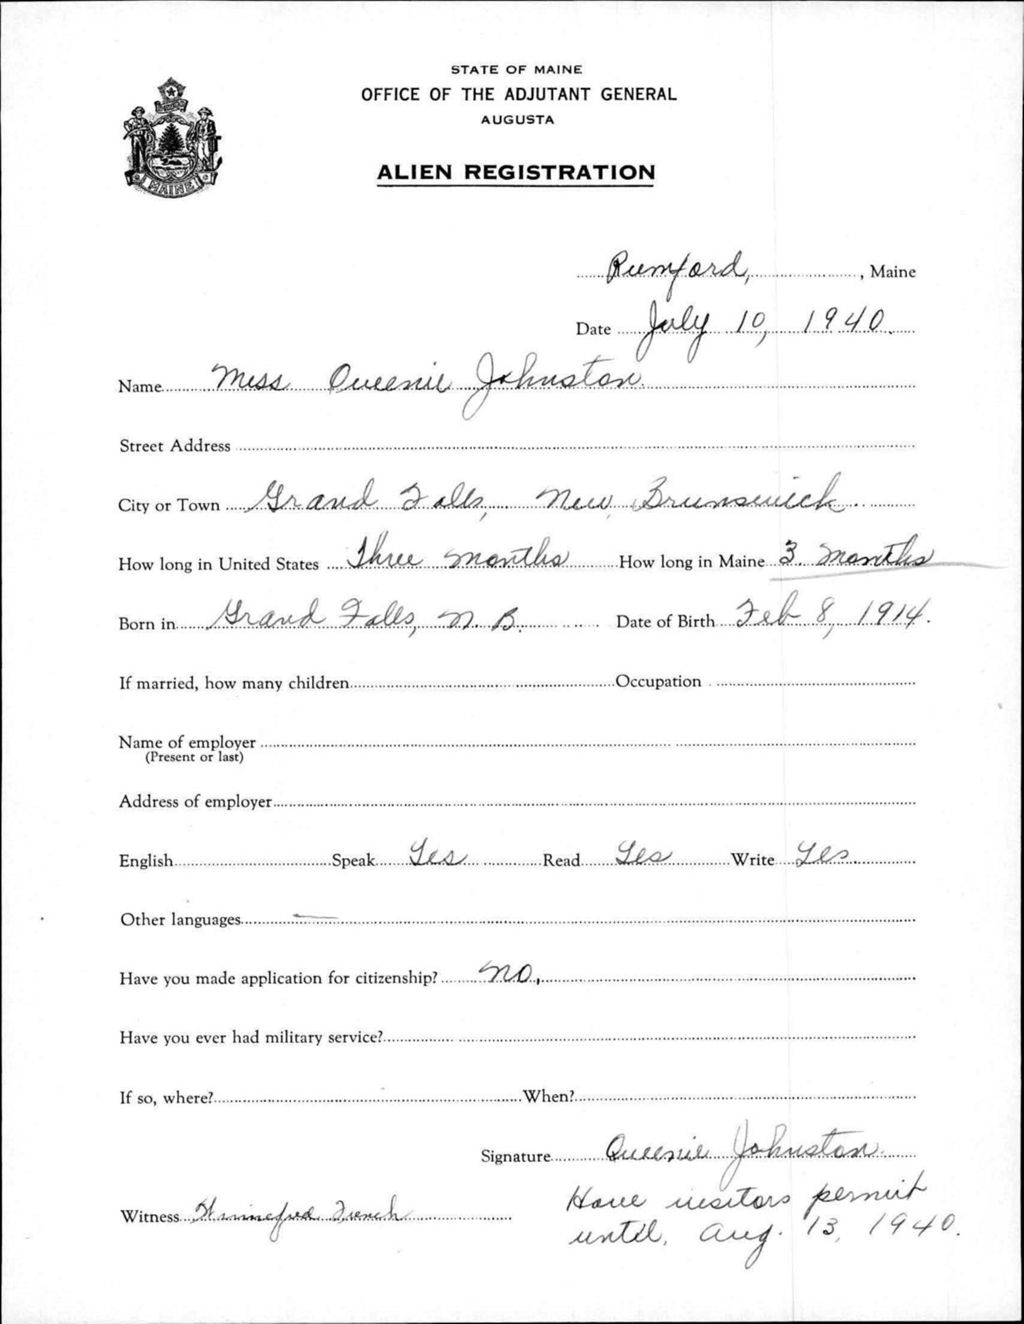 STATE OF MAINE
OFFICE OF THE ADJUTANT GENERAL
AUGUSTA
ALIEN REGISTRATION
MAINE
Rumford, , Maine
Date July 10, 1940.
Name Miss Queenie Johnston.
Street Address
City or Town Grand Falls, New Brunswick.
How long in United States Three months How long in Maine 3 months
Born in Grand Falls, N. B. Date of Birth Feb 8, 1914.
If married, how many children Occupation
Name of employer
(Present or last)
Address of employer
English Speak Yes Read Yes Write Yes
Other languages —
Have you made application for citizenship? No.
Have you ever had military service?
If so, where? When?
Signature Queenie Johnston.
Witness Winnefred French
Have visitors permit
until, Aug. 13, 1940.